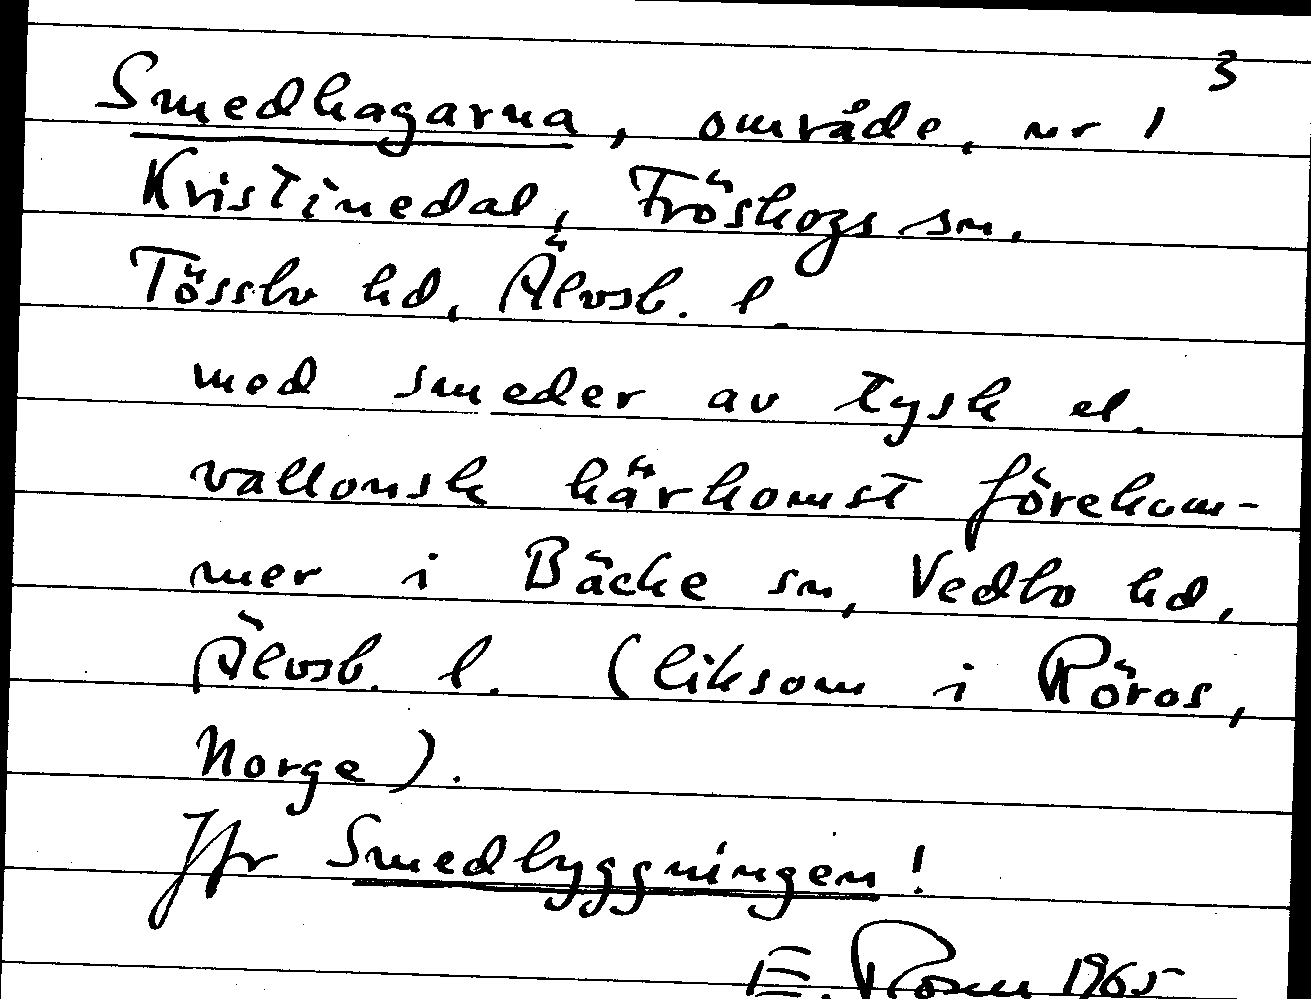 3
Smedhagarna, område, nr 1
Kristinedal, Fröskogs sn.
Tössbo hd, Älvsb. l.
med smeder av tysk el.
vallonsk härkomst förekom-
mer i Bäcke sn, Vedbo hd,
Älvsb. l. (liksom i Röros,
Norge).
Jfr Smedbyggningen!
E. Rosen 1965